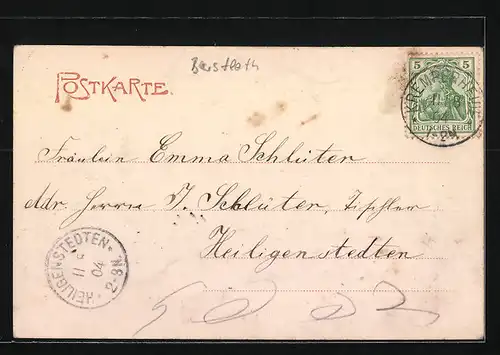 Beistleth
POSTKARTE.
5 5
DEUTSCHES REICH
KREMPERHEIDE
1-2N
Fräulein Emma Schlüter
Adr. Herrn J. Schlüter, Tischler
Heiligenstedten
HEILIGENSTEDTEN
11
04
2-3N.